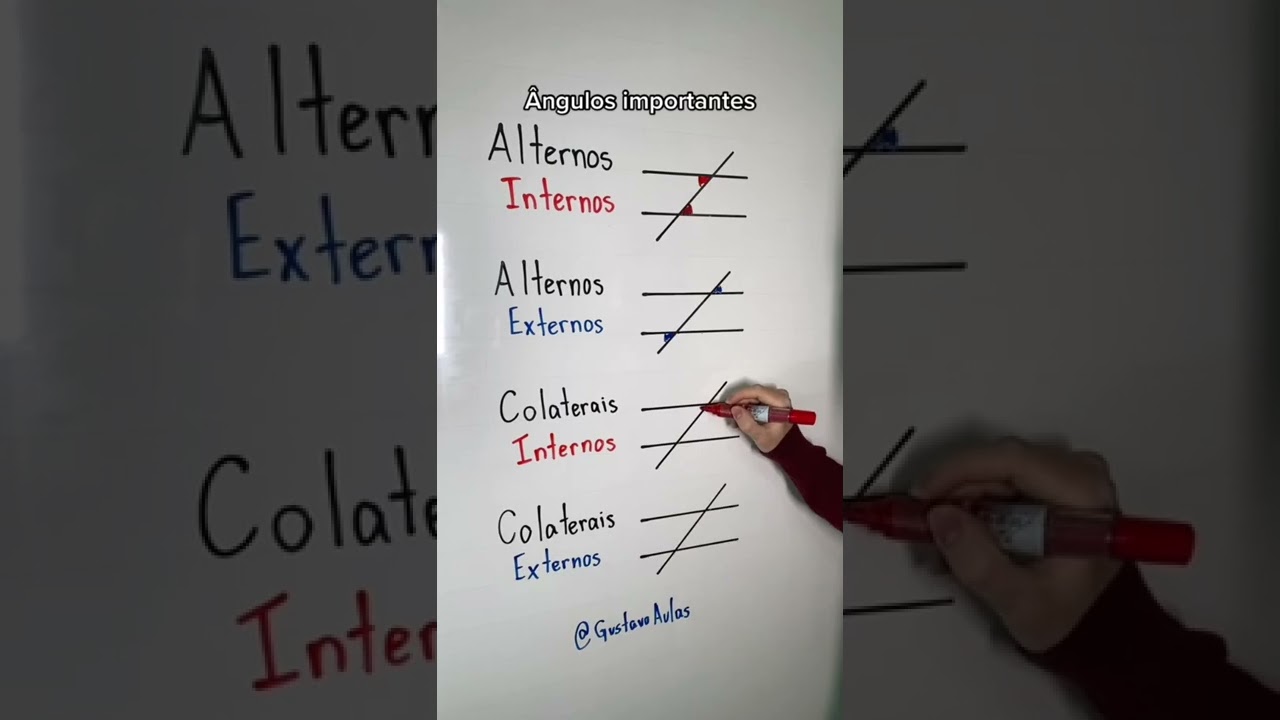 Ângulos importantes
Alternos
Internos
Alternos
Externos
Colaterais
Internos
Colaterais
Externos
@GustavoAulas